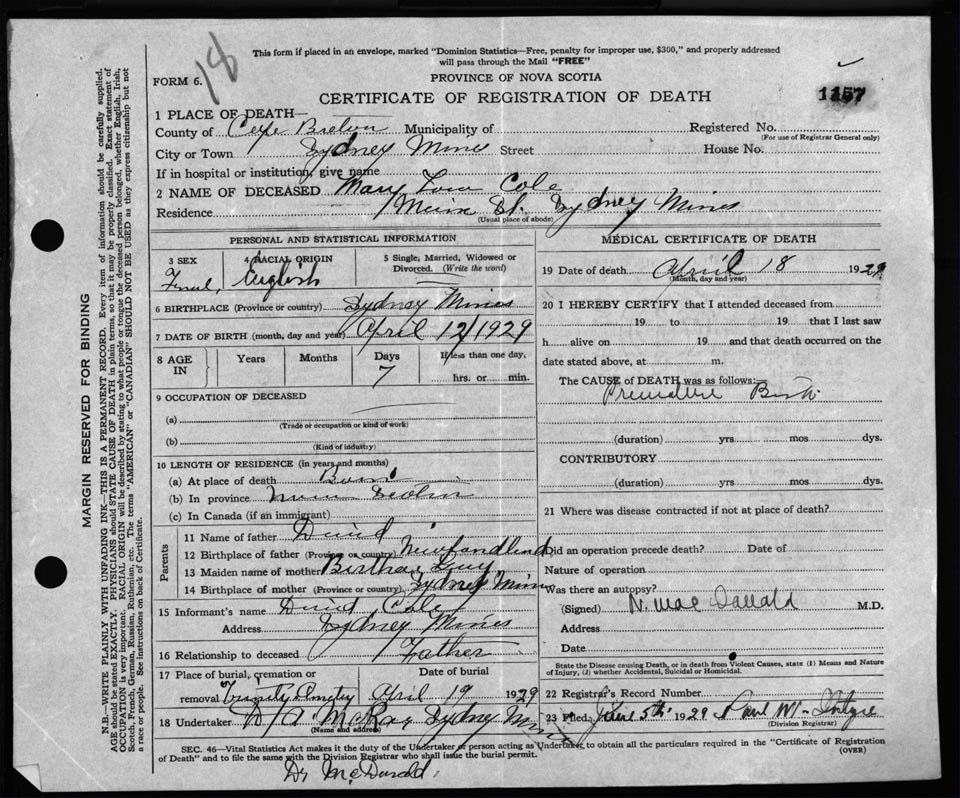 18
This form if placed in an envelope, marked "Dominion Statistics—Free, penalty for improper use, $300," and properly addressed
will pass through the Mail "FREE"
FORM 6.
PROVINCE OF NOVA SCOTIA
CERTIFICATE OF REGISTRATION OF DEATH
1157
1 PLACE OF DEATH—
County of Cape Breton Municipality of Registered No.
(For use of Registrar General only)
City or Town Sydney Mines Street House No.
If in hospital or institution, give name
2 NAME OF DECEASED Mary Cole
Residence Main St. Sydney Mines
(Usual place of abode)
PERSONAL AND STATISTICAL INFORMATION
3 SEX 4 RACIAL ORIGIN 5 Single, Married, Widowed or
Divorced. (Write the word)
English
6 BIRTHPLACE (Province or country) Sydney Mines
7 DATE OF BIRTH (month, day and year) April 12/1929
8 AGE IN Years Months Days If less than one day,
7 hrs. or min.
9 OCCUPATION OF DECEASED
(a)
(Trade or occupation or kind of work)
(b)
(Kind of industry)
10 LENGTH OF RESIDENCE (in years and months)
(a) At place of death Born
(b) In province Nova Scotia
(c) In Canada (if an immigrant)
Parents
11 Name of father David
12 Birthplace of father (Province or country) Newfoundland
13 Maiden name of mother
14 Birthplace of mother (Province or country) Sydney Mines
15 Informant's name David Cole
Address Sydney Mines
16 Relationship to deceased Father
17 Place of burial, cremation or Date of burial
removal Trinity Cmetry April 19 1929
18 Undertaker A McRay Sydney Mines
(Name and address)
MEDICAL CERTIFICATE OF DEATH
19 Date of death April 18 1929
(Month, day and year)
20 I HEREBY CERTIFY that I attended deceased from
19 to 19 that I last saw
h alive on 19 and that death occurred on the
date stated above, at m.
The CAUSE of DEATH was as follows:—
Premature Birth
(duration) yrs mos dys.
CONTRIBUTORY
(duration) yrs mos dys.
21 Where was disease contracted if not at place of death?
Did an operation precede death? Date of
Nature of operation
Was there an autopsy?
(Signed) N. Mac Donald M.D.
Address
Date
State the Disease causing Death, or in death from Violent Causes, state (1) Means and Nature
of Injury, (2) whether Accidental, Suicidal or Homicidal.
22 Registrar's Record Number
23 Filed June 5th 1929 Paul M.
(Division Registrar)
SEC. 46—Vital Statistics Act makes it the duty of the Undertaker or person acting as Undertaker to obtain all the particulars required in the "Certificate of Registration
of Death" and to file the same with the Division Registrar who shall issue the burial permit. (OVER)
Dr McDonald
MARGIN RESERVED FOR BINDING
N.B.—WRITE PLAINLY WITH UNFADING INK—THIS IS A PERMANENT RECORD. Every item of information should be carefully supplied.
AGE should be stated EXACTLY. PHYSICIANS should STATE CAUSE OF DEATH in plain terms, so that it may be properly classified. Exact statement of
OCCUPATION is very important. RACIAL ORIGIN will be described by stating to what people or tongue the deceased person belonged, whether English, Irish,
Scotch, French, German, Russian, Ruthenian, etc. The terms "AMERICAN" or "CANADIAN" SHOULD NOT BE USED as they express citizenship but not
a race or people. See instructions on back of Certificate.